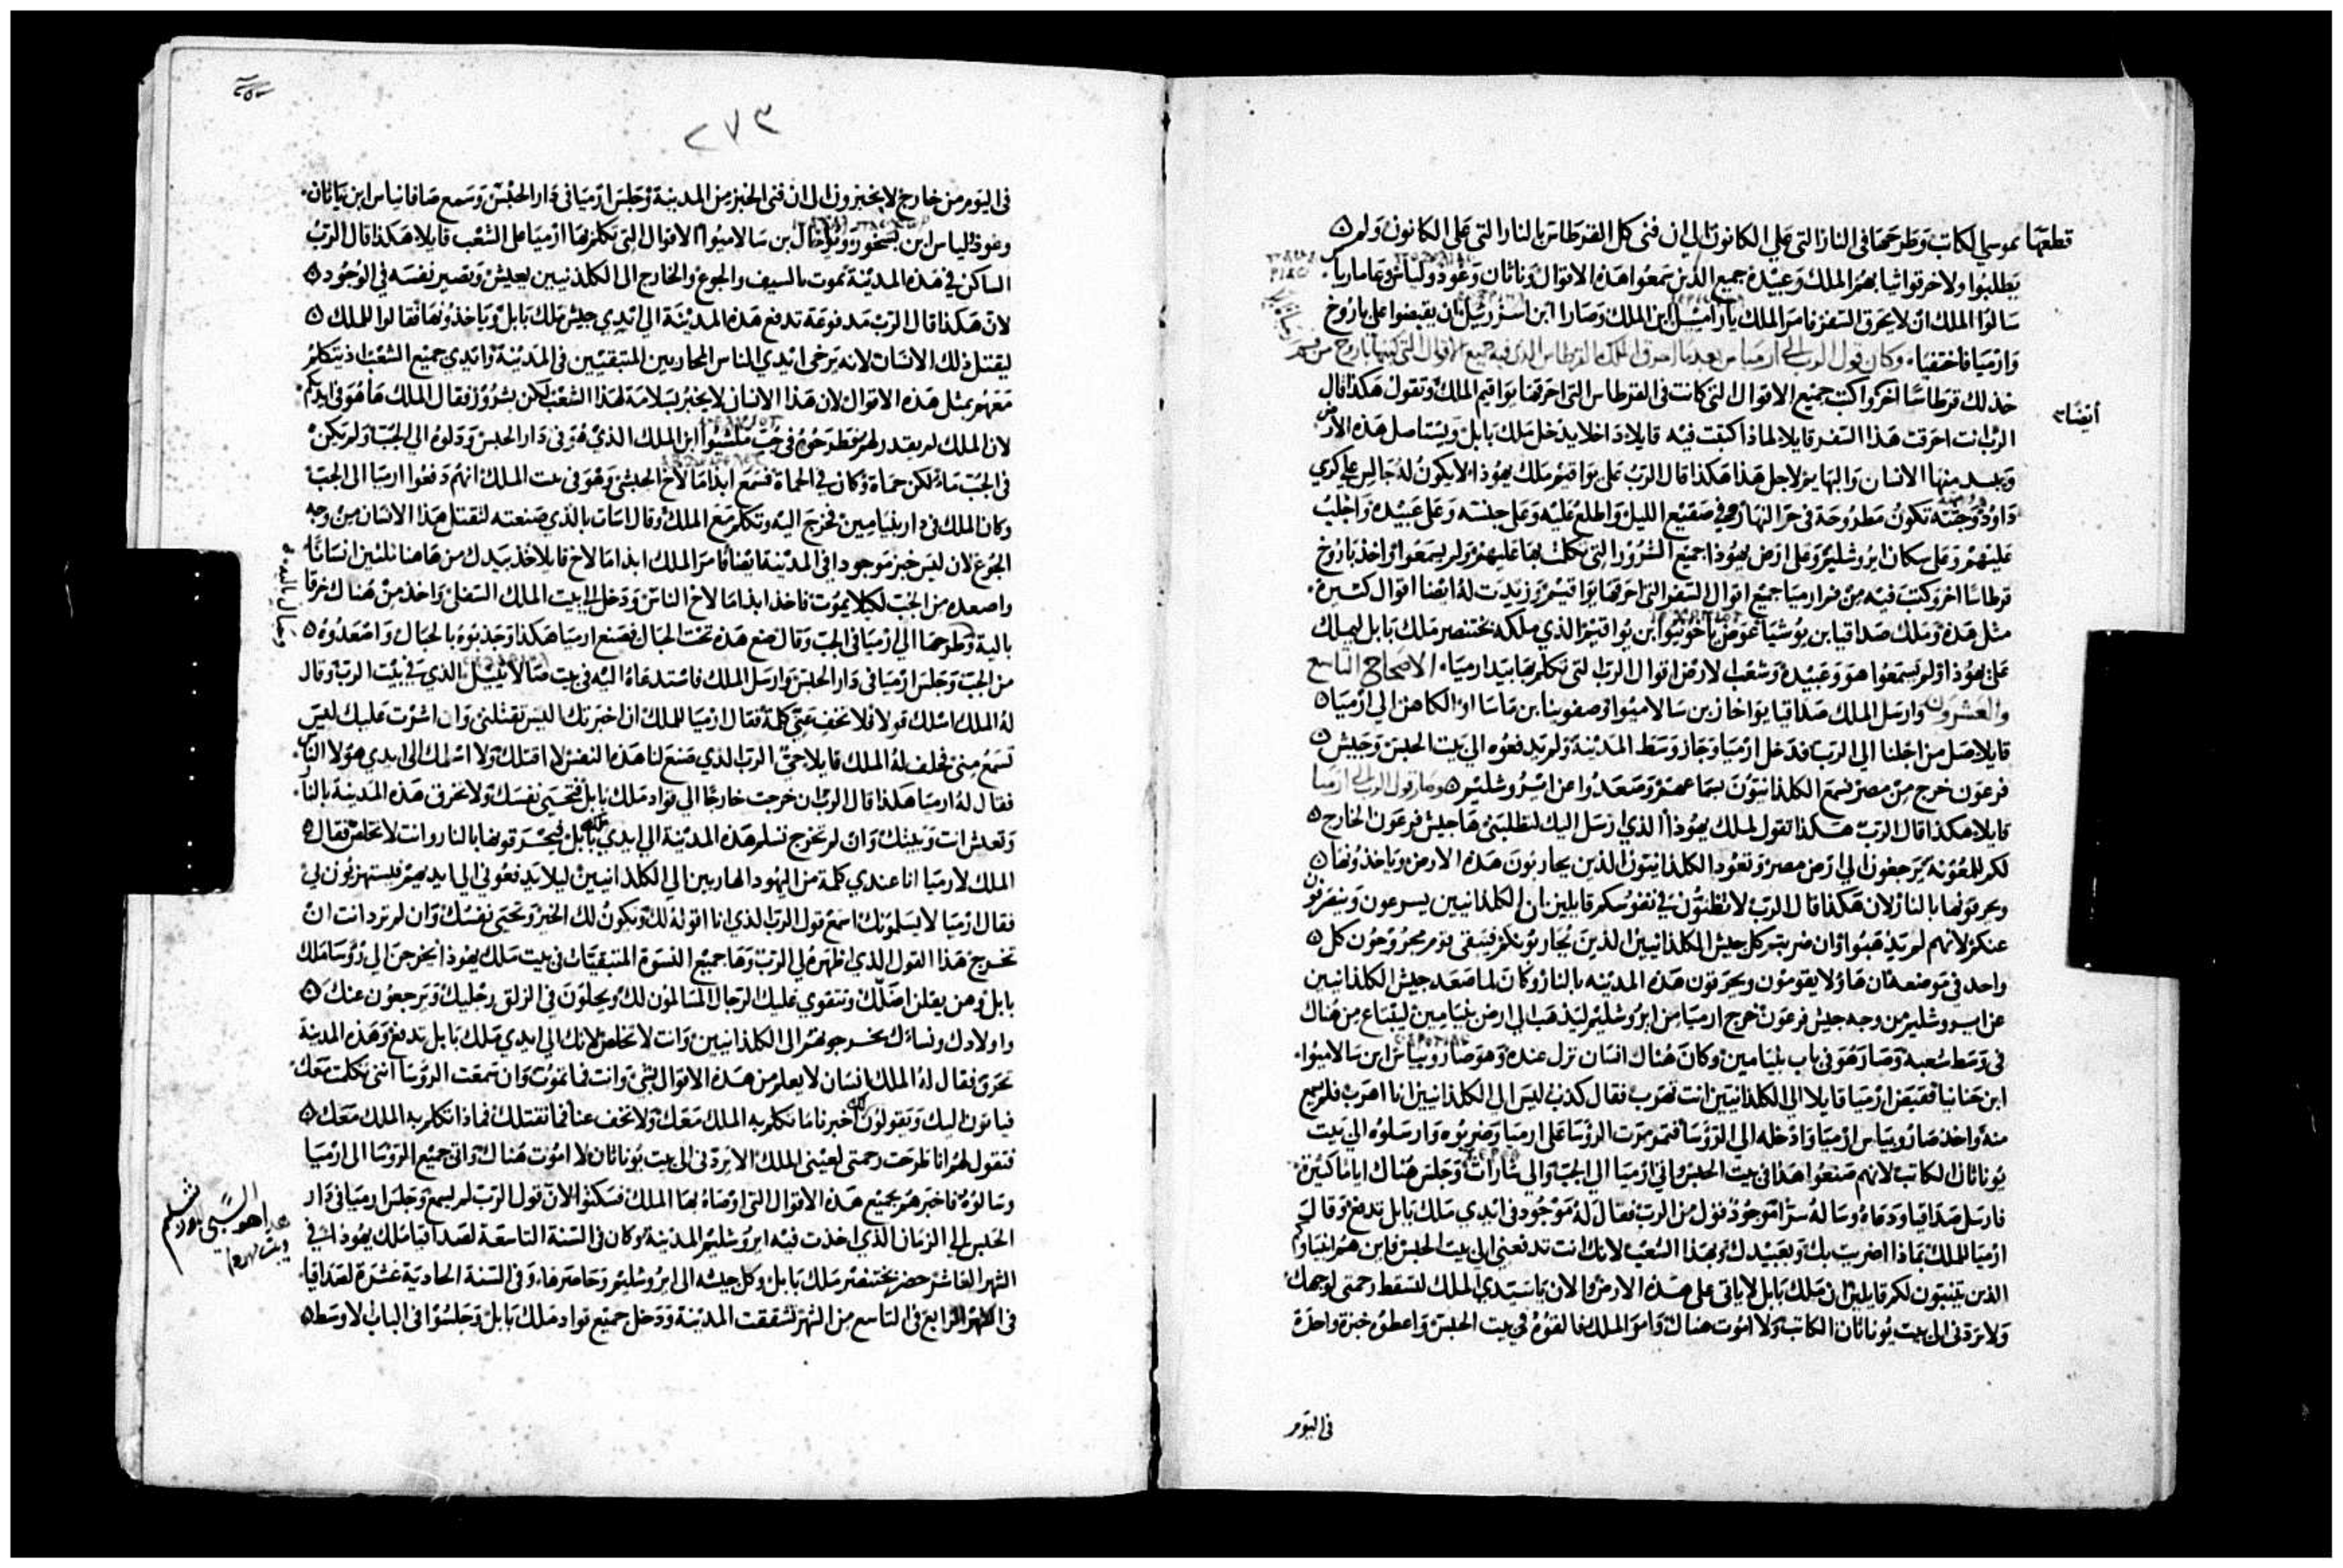 قطعتها بموسي الكاتب وطرحها في النار التي على الكانون الي ان فني كل القرطاس بالنار التي على الكانون ولم
يطلبوا ولا خرقوا ثيابهم الملك وعبيده جميع الذين سمعوا هذه الاقوال وناثان وعود ولياس وغاماريا
سالوا الملك ان لا يحرق السفر فامر الملك يارامييل ابن الملك وصارا ابن اسزرييل ان يقبضوا على باروخ
وارميا فاختفيا وكان قول الرب الي ارميا من بعد ما احرق الملك القرطاس الذي فيه جميع الاقوال التي كتبها باروخ من فم
خذ لك قرطاسًا اخر واكتب جميع الاقوال التي كانت في القرطاس التي احرقها يواقيم الملك وتقول هكذا قال
أيضًا
الرب انت احرقت هذا السفر قايلا لماذا كتبت فيه قايلا داخلا يدخل ملك بابل ويستاصل هذه الارض
ويبيد منها الانسان والبهايم لاجل هذا هكذا قال الرب على يواقيم ملك يهوذا لا يكون له جالس على كرسي
داود وجثته تكون مطروحة في حر النهار وفي صقيع الليل واطلع عليه وعلى جنسه وعلى عبيده واجلب
عليهم وعلى سكان ايروشليم وعلى ارض يهوذا جميع الشرور التي تكلمت بها عليهم ولم يسمعوا واخذ باروخ
قرطاسا اخر وكتب فيه من فم ارميا جميع اقوال السفر التي احرقها يواقيم وزيدت له ايضا اقوال كثيرة
مثل هذه وملك صداقيا بن يوشيا عوض ياخونيوا ابن يواقيم الذي ملكه بختنصر ملك بابل ليملك
على يهوذا ولم يسمعوا هو وعبيده وشعب الارض اقوال الرب التي تكلم بها بيد ارميا الاصحاح التاسع
والعشرون وارسل الملك صداقيا يواخاز بن سالاميوا وصفونيا بن ماسا او الكاهن الي ارميا
قايلا صل من اجلنا الي الرب فدخل ارميا وجاز وسط المدينة ولم يدفعوه الي بيت الحبس وجيش
فرعون خرج من مصر فسمع الكلدانيون بسماعهم وصعدوا عن ايروشليم وصار قول الرب الي ارميا
قايلا هكذا قال الرب هكذا تقول لملك يهوذا الذي ارسل اليك لتطلبني ها جيش فرعون الخارج
لكم للمعونة يرجعون الي ارض مصر وتعود الكلدانيون الذين يحاربون هذه الارض وياخذونها
ويحرقونها بالنار لان هكذا قال الرب لا تظنون في نفوسكم قايلين ان الكلدانيين يسرعون وينصرفون
عنكم لانهم لم يذهبوا وان ضربتم كل جيش الكلدانيين الذين يحاربونكم فيبقى قوم مجروحون كل
واحد في موضعه فان هاولا يقومون ويحرقون هذه المدينه بالنار وكان لما صعد جيش الكلدانيين
عن ايروشليم من وجه جيش فرعون خرج ارميا من ايروشليم ليذهب الي ارض بنيامين ليبتاع من هناك
في وسط شعبه وصار هو في باب بنيامين وكان هناك انسان نزل عنده وهو صاروبياس ابن سالاميوا
ابن حنانيا فقبض ارميا قايلا الي الكلدانيين انت تهرب فقال كذب ليس الي الكلدانيين انا اهرب فلم يسمع
منه واخذ صاروبياس ارميا وادخله الي الروسا فتمرمرت الروسا على ارميا وضربوه وارسلوه الي بيت
يوناثان الكاتب لانهم صنعوا هذا في بيت الحبس واتي ارميا الي الجب والي شارات وجلس هناك اياما كثيرة
فارسل صداقيا ودعاه وساله سرًا موجود قول من الرب فقال له موجود في ايدي ملك بابل تدفع وقال
ارميا للملك بماذا اضريت بك وبعبيدك وبهذا الشعب لانك انت تدفعني الي بيت الحبس فاين هم انبياوكم
الذين يتنبون لكم قايلين ان ملك بابل لا ياتي على هذه الارض والان يا سيدي الملك لتسقط رحمتي لوجهك
ولا تردني الي بيت يوناثان الكاتب ولا اموت هناك وامر الملك فالقوه في بيت الحبس واعطوه خبزة واحدة
في اليوم
٢٧٣
في اليوم من خارج لا يخبزون الي ان فني الخبز من المدينة وجلس ارميا في دار الحبس وسمع صافانياس ابن ناثان
وغوذلياس ابن بسخور ويواخال بن سالاميوا الاقوال التي تكلم بها ارميا على الشعب قايلا هكذا قال الرب
الساكن في هذه المدينة يموت بالسيف والجوع والخارج الي الكلدنيين يعيش وتصير نفسه في الوجود
لان هكذا قال الرب مدفوعة تدفع هذه المدينة الي ايدي جيش ملك بابل وياخذونها فقالوا للملك
ليقتل ذلك الانسان لانه يرخي ايدي الناس المحاربين المتبقيين في المدينة وايدي جميع الشعب اذ يتكلم
معهم بمثل هذه الاقوال لان هذا الانسان لا يخبر بسلامة لهذا الشعب لكن بشرور فقال الملك ها هو في ايديكم
لان الملك لم يقدر لهم فطرحوه في جب ملشيوا ابن الملك الذي هو في دار الحبس ودلوه الي الجب ولم يكن
في الجب ماء لكن حماة وكان في الحماة فسمع ابدامالاخ الحبشي وهو في بيت الملك انهم دفعوا ارميا الي الجب
وكان الملك في دار بنيامين فخرج اليه وتكلم مع الملك وقال اسات بالذي صنعته لتقتل هذا الانسان من وجه
الجوع لان ليس خبز موجودا في المدينة ايضا فامر الملك ابدامالاخ قايلا خذ بيدك من هاهنا ثلثين انسانًا
واصعده من الجب لكيلا يموت فاخذ ابدامالاخ الناس ودخل الي بيت الملك السفلي واخذ من هناك خرقا
بالية وطرحها الي ارميا في الجب وقال ضع هذه تحت الحبال فصنع ارميا هكذا وجذبوه بالحبال واصعدوه
من الجب وجلس ارميا في دار الحبس وارسل الملك فاستدعاه اليه في بيت صالاثييل الذي في بيت الرب وقال
له الملك اسلك قولا فلا تخف عني كلمة فقال ارميا للملك ان اخبرتك اليس تقتلني وان اشرت عليك ليس
تسمع مني فحلف له الملك قايلا حي الرب الذي صنع لنا هذه النفس لا اقتلك ولا اسلمك الي ايدي هولا الناس
فقال له ارميا هكذا قال الرب ان خرجت خارجا الي قواد ملك بابل فتحيي نفسك ولا تحرق هذه المدينة بالنار
وتعيش انت وبيتك وان لم تخرج تسلم هذه المدينة الي ايدي ملك بابل فيحرقونها بالنار وانت لا تخلص فقال
الملك لارميا انا عندي كلمة من اليهود الهاربين الي الكلدانيين ليلا يدفعوني الي ايديهم فيستهزون بي
فقال ارميا لا يسلمونك اسمع قول الرب الذي انا اقوله لك ويكون لك الخير وتحيي نفسك وان لم ترد انت ان
تخرج هذا القول الذي اظهره لي الرب وها جميع النسوة المتبقيات في بيت ملك يهوذا يخرجن الي روسا ملك
بابل وهن يقلن اضلك وتقوي عليك الرجال المسالمون لك ويحلون في الزلق رجليك ويرجعون عنك
واولادك ونساءك يخرجونهم الي الكلدانيين وانت لا تخلص لانك الي ايدي ملك بابل تدفع وهذه المدينة
تحرق فقال له الملك انسان لا يعلم من هذه الاقوال بشي وانت فما تموت وان سمعت الروسا انني تكلمت معك
فياتون اليك ويقولون لك اخبرنا ما تكلم به الملك معك ولا تخف عنا فما نقتلك فماذا تكلم به الملك معك
فتقول لهم انا طرحت رحمتي لعيني الملك الا يردني الي بيت يوناثان لا اموت هناك واتي جميع الروسا الي ارميا
وسالوه فاخبرهم بجميع هذه الاقوال التي اوصاه بها الملك فسكتوا لان قول الرب لم يسمع وجلس ارميا في دار
الحبس الي الزمان الذي اخذت فيه ايروشليم المدينة وكان في السنة التاسعة لصداقيا ملك يهوذا في
الشهر العاشر حضر بختنصر ملك بابل وكل جيشه الي ايروشليم وحاصرها وفي السنة الحادية عشرة لصداقيا
في الشهر الرابع في التاسع من الشهر تشققت المدينة ودخل جميع قواد ملك بابل وجلسوا في الباب الاوسط